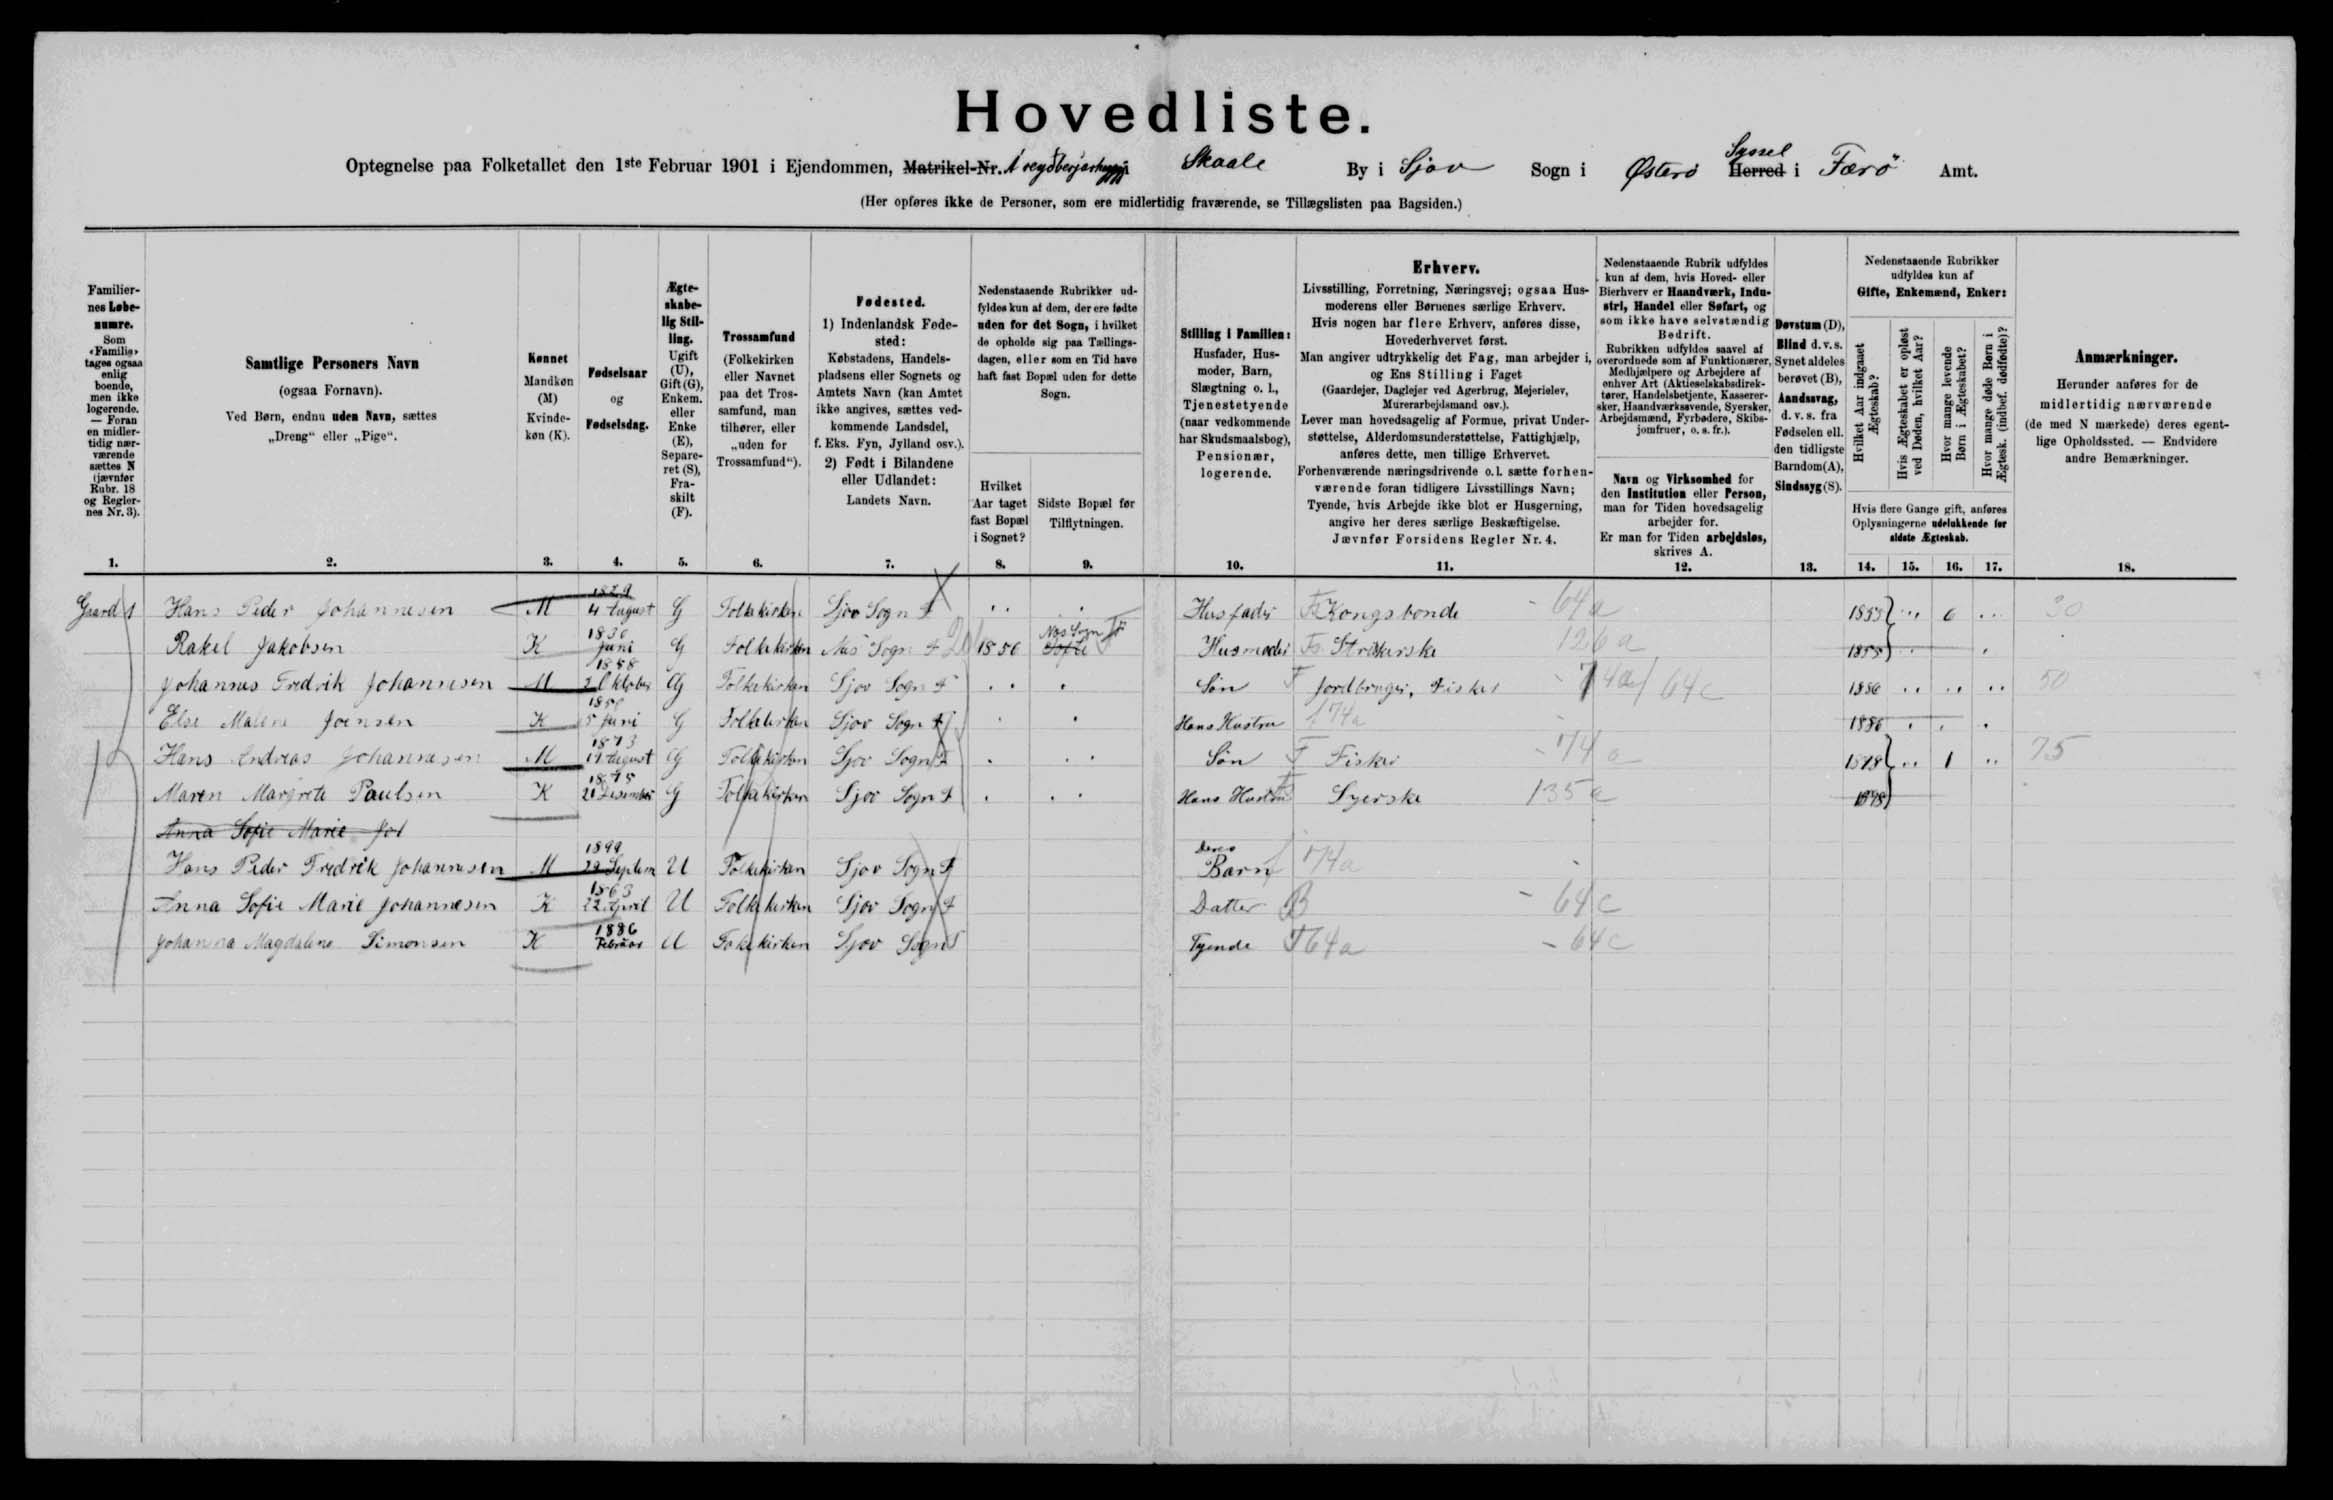 Hovedliste.
Optegnelse paa Folketallet den 1ste Februar 1901 i Ejendommen, Matrikel-Nr. Skaale By i Sjov Sogn i Østerö Syssel Herred i Færö Amt.
(Her opføres ikke de Personer, som ere midlertidig fraværende, se Tillægslisten paa Bagsiden.)
Familiernes Løbenumre.
Som «Familie» tages ogsaa enlig boende, men ikke logerende. — Foran en midlertidig nærværende sættes N (jævnfør Rubr. 18 og Reglernes Nr. 3).
Samtlige Personers Navn
(ogsaa Fornavn).
Ved Børn, endnu uden Navn, sættes
„Dreng“ eller „Pige“.
Kønnet
Mandkøn (M)
Kvindekøn (K).
Fødselsaar
og
Fødselsdag.
Ægteskabelig Stilling.
Ugift (U), Gift (G), Enkem. eller Enke (E), Separeret (S), Fraskilt (F).
Trossamfund
(Folkekirken eller Navnet paa det Trossamfund, man tilhører, eller „uden for Trossamfund“).
Fødested.
1) Indenlandsk Fødested:
Købstadens, Handelspladsens eller Sognets og Amtets Navn (kan Amtet ikke angives, sættes vedkommende Landsdel, f. Eks. Fyn, Jylland osv.).
2) Født i Bilandene eller Udlandet:
Landets Navn.
Nedenstaaende Rubrikker udfyldes kun af dem, der ere fødte uden for det Sogn, i hvilket de opholde sig paa Tællingsdagen, eller som en Tid have haft fast Bopæl uden for dette Sogn.
Hvilket Aar taget fast Bopæl i Sognet?
Sidste Bopæl før Tilflytningen.
Stilling i Familien:
Husfader, Husmoder, Barn, Slægtning o. l., Tjenestetyende (naar vedkommende har Skudsmaalsbog), Pensionær, logerende.
Erhverv.
Livsstilling, Forretning, Næringsvej; ogsaa Husmoderens eller Børnenes særlige Erhverv.
Hvis nogen har flere Erhverv, anføres disse, Hovederhvervet først.
Man angiver udtrykkelig det Fag, man arbejder i, og Ens Stilling i Faget
(Gaardejer, Daglejer ved Agerbrug, Mejerielev, Murerarbejdsmand osv.).
Lever man hovedsagelig af Formue, privat Understøttelse, Alderdomsunderstøttelse, Fattighjælp, anføres dette, men tillige Erhvervet.
Forhenværende næringsdrivende o. l. sætte forhenværende foran tidligere Livsstillings Navn;
Tyende, hvis Arbejde ikke blot er Husgerning, angive her deres særlige Beskæftigelse.
Jævnfør Forsidens Regler Nr. 4.
Nedenstaaende Rubrik udfyldes kun af dem, hvis Hoved- eller Bierhverv er Haandværk, Industri, Handel eller Søfart, og som ikke have selvstændig Bedrift.
Rubrikken udfyldes saavel af overordnede som af Funktionærer, Medhjælpere og Arbejdere af enhver Art (Aktieselskabsdirektører, Handelsbetjente, Kasserersker, Haandværkssvende, Syersker, Arbejdsmænd, Fyrbødere, Skibsjomfruer, o. s. fr.).
Navn og Virksomhed for den Institution eller Person, man for Tiden hovedsagelig arbejder for.
Er man for Tiden arbejdsløs, skrives A.
Døvstum (D), Blind d. v. s. Synet aldeles berøvet (B), Aandssvag, d. v. s. fra Fødselen ell. den tidligste Barndom (A), Sindssyg (S).
Nedenstaaende Rubrikker udfyldes kun af Gifte, Enkemænd, Enker:
Hvilket Aar indgaaet Ægteskab?
Hvis Ægteskabet er opløst ved Døden, hvilket Aar?
Hvor mange levende Børn i Ægteskabet?
Hvor mange døde Børn i Ægtesk. (indbef. dødfødte)?
Hvis flere Gange gift, anføres Oplysningerne udelukkende for sidste Ægteskab.
Anmærkninger.
Herunder anføres for de midlertidig nærværende (de med N mærkede) deres egentlige Opholdssted. — Endvidere andre Bemærkninger.
1. 2. 3. 4. 5. 6. 7. 8. 9. 10. 11. 12. 13. 14. 15. 16. 17. 18.
Gaard 1 Hans Peder Johannesen M 1829 4 August G Folkekirken Sjov Sogn F Husfader Kongsbonde 64a 1855 6 30
Rakel Jakobsen K 1830 Juni G Folkekirken Nes Sogn F 1856 Nes Sogn Husmoder Strikkerske 126a 1855
Johannes Fredrik Johannesen M Oktober G Folkekirken Sjov Sogn F Søn F Jordbruger, Fisker 74a 64c 1886 50
Else Malene Joensen K 5 Juni G Folkekirken Sjov Sogn F Hans Hustru 74a 1886
Hans Andreas Johannesen M 1873 August G Folkekirken Sjov Sogn F Søn F Fisker 74a 1898 1 75
Maren Margrete Paulsen K 1875 Desember G Folkekirken Sjov Sogn F Hans Hustru Syerske 135a 1898
Anna Sofie Marie Joh
Hans Peder Fredrik Johannesen M 1899 29 Septem U Folkekirken Sjov Sogn F Deres Barn 74a
Anna Sofie Marie Johannesen K 1863 22 April U Folkekirken Sjov Sogn F Datter B 64c
Johanna Magdalene Simonsen K 1886 Februar U Folkekirken Sjov Sogn F Tyende 64a 64c